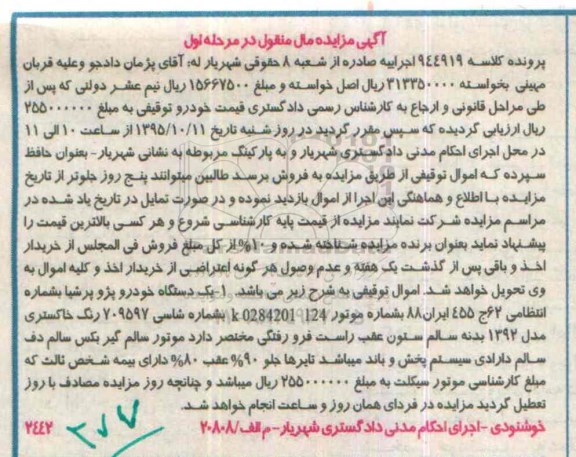 آگهی مزایده مال منقول در مرحله اول
پرونده کلاسه ۹۴۴۹۱۹ اجراییه صادره از شعبه ۸ حقوقی شهریار له: آقای پژمان دادجو وعلیه قربان
مهینی بخواسته ۳۱۳۳۵۰۰۰۰ ریال اصل خواسته و مبلغ ۱۵۶۶۷۵۰۰ ریال نیم عشر دولتی که پس از
طی مراحل قانونی و ارجاع به کارشناس رسمی دادگستری قیمت خودرو توقیفی به مبلغ ۲۵۵۰۰۰۰۰۰
ریال ارزیابی گردیده که سپس مقرر گردید در روز شنبه تاریخ ۱۳۹۵/۱۰/۱۱ از ساعت ۱۰ الی ۱۱
در محل اجرای احکام مدنی دادگستری شهریار و به پارکینگ مربوطه به نشانی شهریار- بعنوان حافظ
سپرده که اموال توقیفی از طریق مزایده به فروش برسد طالبین میتوانند پنج روز جلوتر از تاریخ
مزایده با اطلاع و هماهنگی این اجرا از اموال بازدید نموده و در صورت تمایل در تاریخ یاد شده در
مراسم مزایده شرکت نمایند مزایده از قیمت پایه کارشناسی شروع و هر کسی بالاترین قیمت را
پیشنهاد نماید بعنوان برنده مزایده شناخته شده و ۱۰% از کل مبلغ فروش فی المجلس از خریدار
اخذ و باقی پس از گذشت یک هفته و عدم وصول هر گونه اعتراضی از خریدار اخذ و کلیه اموال به
وی تحویل خواهد شد. اموال توقیفی به شرح زیر می باشد. ۱-یک دستگاه خودرو پژو پرشیا بشماره
انتظامی ۶۲ج ۴۵۵ ایران۸۸ بشماره موتور 124 k 0284201 بشماره شاسی ۷۰۹۵۹۷ رنگ خاکستری
مدل ۱۳۹۲ بدنه سالم ستون عقب راست فرو رفتگی مختصر دارد موتور سالم گیر بکس سالم دف
سالم دارادی سیستم پخش و باند میباشد تایرها جلو ۹۰% عقب ۸۰% دارای بیمه شخص ثالث که
مبلغ کارشناسی موتور سیکلت به مبلغ ۲۵۵۰۰۰۰۰۰ ریال میباشد و چنانچه روز مزایده مصادف با روز
تعطیل گردید مزایده در فردای همان روز و ساعت انجام خواهد شد.
خوشنودی -اجرای احکام مدنی دادگستری شهریار- م الف/۲۰۸۰۸ ۲۴۴۲